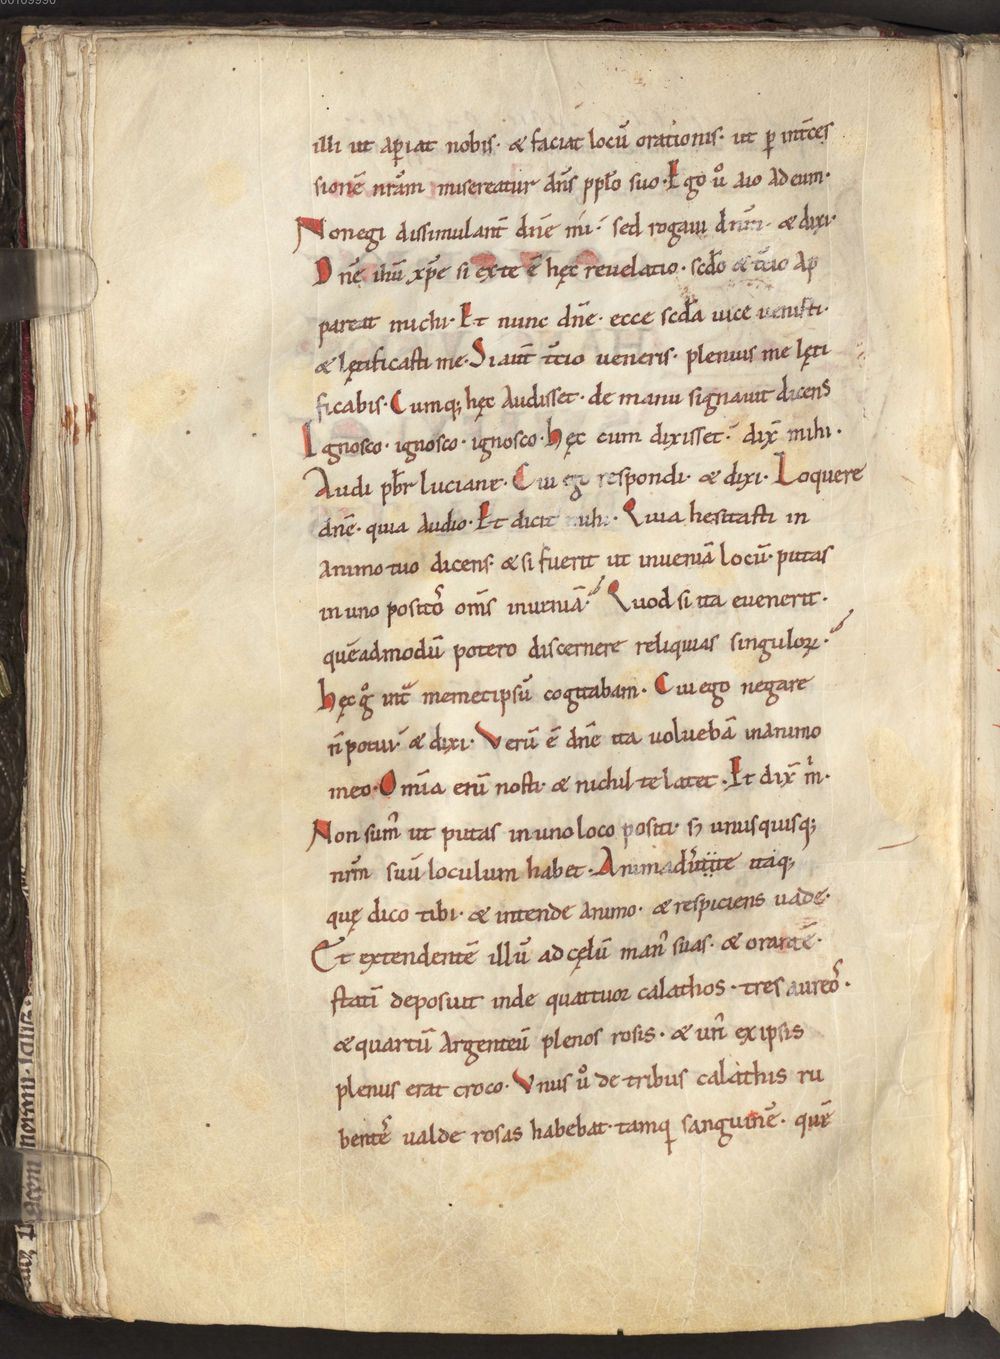 illi ut ap̲iat nobis· & faciat locū orationis· ut p̲ int̄ces
sionē nr̄am misereatur dn̄s pp̄lo suo· Ego u̾o aio ad eum·
Non egi dissimulant̄ dn̄e mi· sed rogaui dnm̄· & dixi·
Dn̄e ih̄u xp̄e si ex te ē hęc reuelatio· sc̄do & t̄cio ap
pareat michi· Et nunc dn̄e· ecce sc̄da uice uenisti·
& lętificasti me· Si aut̄ t̄cio ueneris· plenius me lęti
ficabis· Cumq; hęc audisset· de manu signauit dicens
Ignosco· ignosco· ignosco· hęc cum dixisset· dix̄ mihi·
Audi pb̄r luciane· Cui ego respondi· & dixi· Loquere
dn̄e· quia audio· Et dicit mihi· Quia hesitasti in
animo tuo dicens· & si fuerit ut inueniā locū· putas
in uno posito᷒ om̄s inueniā· Quod si ita euenerit·
quēadmodū potero discernere reliquias singuloꝝ·
hęc g̊ int̄ memetipsū cogitabam· Cui ego negare
n̄ potui· & dixi· Verū ē dn̄e ita uoluebā in animo
meo· Om̄ia enī nosti· & nichil te latet· Et dix̄ m̍·
Non sum᷒ ut putas in uno loco positi· s; unusquisq;
nr̄m suū loculum habet· Animaduertite itaq;
quę dico tibi· & intende animo· & respiciens uade·
Et extendentē illū ad cęlū man᷒ suas· & orantē·
statī deposuit inde quattuor calathos· tres aureo᷒·
& quartū argenteū plenos rosis· & un᷒ ex ipsis
plenus erat croco· Vnus u̾o de tribus calathis ru
bente᷒ ualde rosas habebat· tamq̲ sanguinē· quē